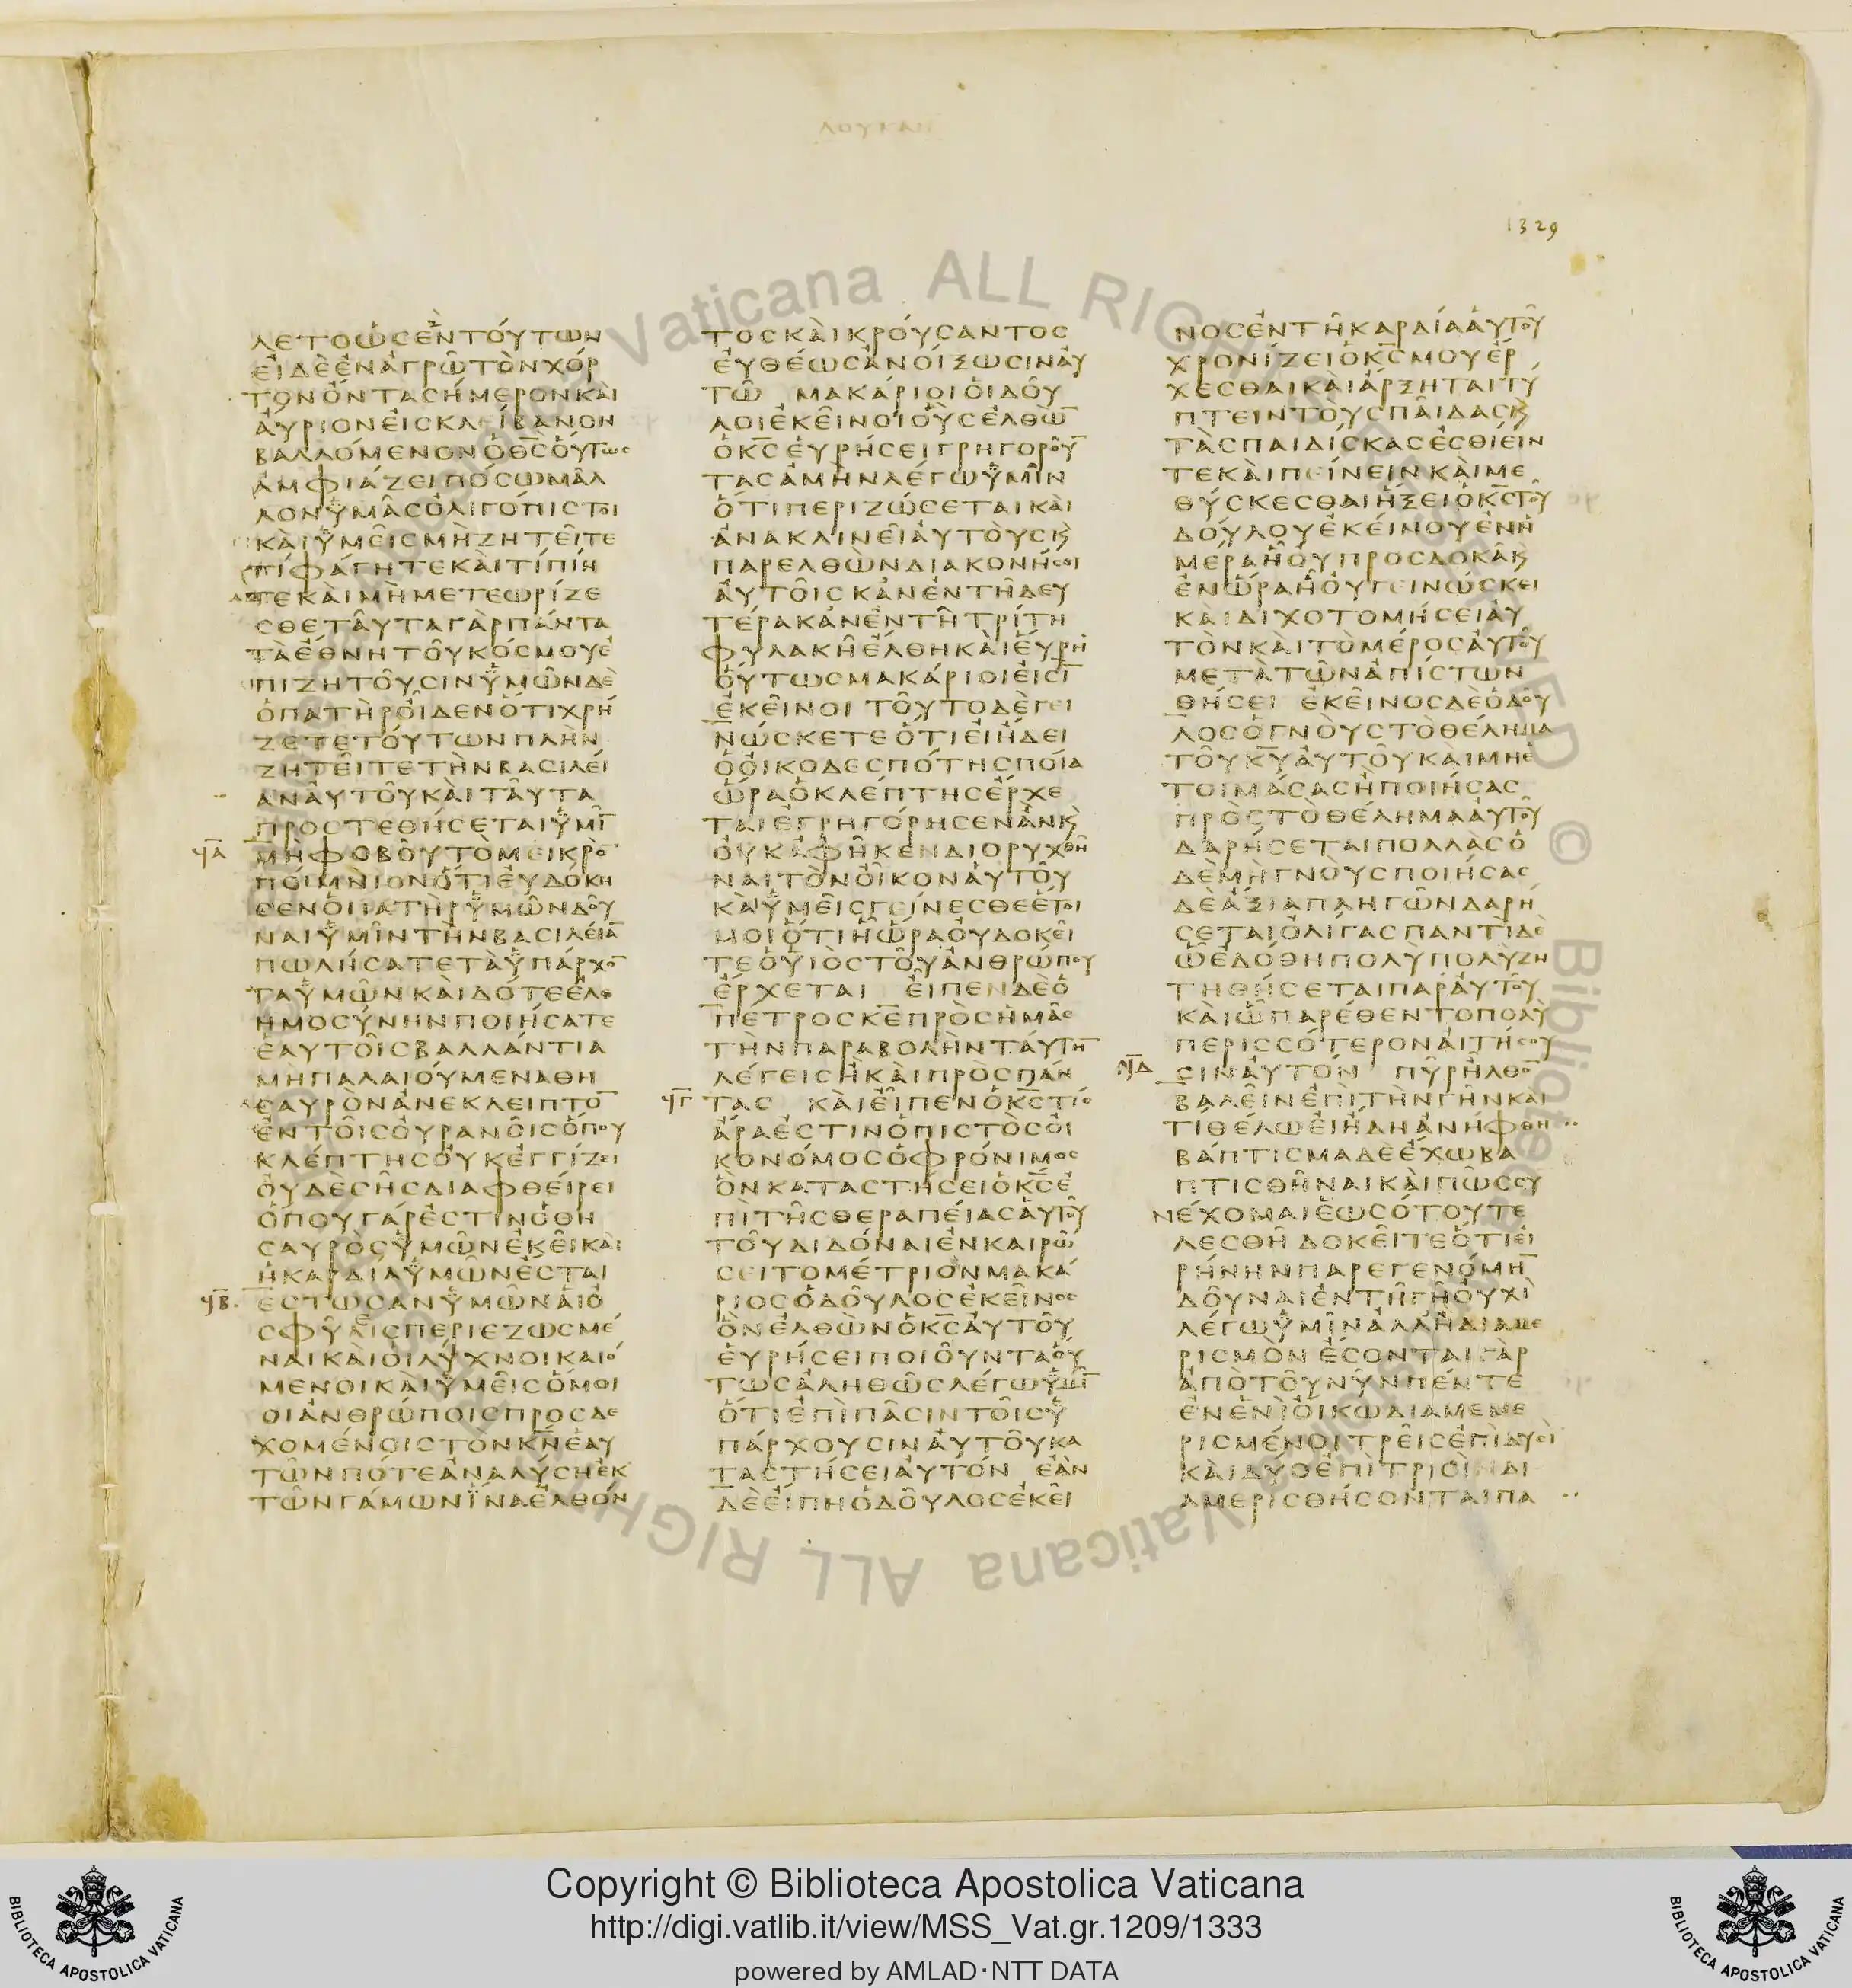 ΛΟΥΚΑΝ
1329
ΛΕΤΟὡϹἓΝΤΟΎΤΩΝ
ΕἸΔῈἘΝἈΓΡΩ͂ΤῸΝΧΌΡ
ΤΟΝὌΝΤΑϹΉΜΕΡΟΝΚΑῚ
ἈΎΡΙΟΝἘΙϹΚΛΕΊΒΑΝΟΝ
ΒΑΛΛΌΜΕΝΟΝὉΘ̅Ϲ̅ὉΎΤΩϹ
ἈΜΦΙΆΖΕΙΠΌϹΩΜΑ͂Λ
ΛΟΝΫΜΑ͂ϹὈΛΙΓΌΠΙϹΤΟΙ
ΚΑῚΫΜΕΙ͂ϹΜῊΖΗΤΕΙ͂ΤΕ
ΤΊΦΆΓΗΤΕΚΑῚΤΊΠΊΗ
ΤΕΚΑῚΜῊΜΕΤΕΩΡΊΖΕ
ϹΘΕΤΑΥ͂ΤΑΓᾺΡΠΆΝΤΑ
ΤᾺἜΘΝΗΤΟΥ͂ΚΌϹΜΟΥἘ
ΠΙΖΗΤΟΥ͂ϹΙΝΫΜΩ͂ΝΔῈ
ὉΠΑΤῊΡΟἾΔΕΝὍΤΙΧΡΉ
ΖΕΤΕΤΟΎΤΩΝΠΛῊΝ
ΖΗΤΕΙ͂ΤΕΤῊΝΒΑϹΙΛΕΊ
ΑΝΑΥ͂ΤΟΥ͂ΚΑῚΤΑΥ͂ΤΑ
ΠΡΟϹΤΕΘΉϹΕΤΑΙΫΜΙ͂̅
ϤΑ̅ ΜῊΦΟΒΟΥ͂ΤῸΜΕΙΚΡΟ̅
ΠΟΊΜΝΙΟΝὍΤΙἘΥΔΌΚΗ
ϹΕΝὉΠΑΤῊΡΫΜΩ͂ΝΔΟΥ͂
ΝΑΙΫΜΙ͂ΝΤῊΝΒΑϹΙΛΕΊΑ̅
ΠΩΛΉϹΑΤΕΤᾺΫΠΆΡΧΟ̅
ΤΑΫΜΩ͂ΝΚΑῚΔΌΤΕἘΛΕ
ΗΜΟϹΎΝΗΝΠΟΙΉϹΑΤΕ
ἙΑΥΤΟΙ͂ϹΒΑΛΛΆΝΤΙΑ
ΜῊΠΑΛΑΙΟΎΜΕΝΑΘΗ
ϹΑΥΡῸΝἈΝΕΚΛΕΙΠΤΟ̅
ἘΝΤΟΙ͂ϹΟΥΡΑΝΟΙ͂ϹὍΠΟΥ
ΚΛΈΠΤΗϹΟΥΚἘΓΓΊΖΕΙ
ΟΥΔῈϹῊϹΔΙΑΦΘΕΊΡΕΙ
ὍΠΟΥΓΆΡἘϹΤΙΝὉΘΗ
ϹΑΥΡῸϹΫΜΩ͂ΝἘΚΕΙ͂ΚΑῚ
ἩΚΑΡΔΊΑΫΜΩ͂ΝἜϹΤΑΙ
ϤΒ̅ ἜϹΤΩϹΑΝΫΜΩ͂ΝἉΙΟ
ϹΦΥΕϹΠΕΡΙΕΖΩϹΜΈ
ΝΑΙΚΑῚὉΙΛΎΧΝΟΙΚΑΙΌ
ΜΕΝΟΙΚΑῚΫΜΕΙ͂ϹὍΜΟΙ
ΟΙἈΝΘΡΏΠΟΙϹΠΡΟϹΔΕ
ΧΟΜΈΝΟΙϹΤῸΝΚ̅Ν̅ἙΑΥ
ΤΩ͂ΝΠΌΤΕἈΝΑΛΎϹΗἘΚ
ΤΩ͂ΝΓΆΜΩΝΪ́ΝΑἘΛΘΌΝ
ΤΟϹΚΑῚΚΡΟΎϹΑΝΤΟϹ
ἘΥΘΈΩϹἈΝΟΊΞΩϹΙΝΑΥ
ΤΩ͂ ΜΑΚΆΡΙΟΙὉΙΔΟΥ͂
ΛΟΙἘΚΕΙ͂ΝΟΙΟὛϹἘΛΘῺ̅
ὉΚ̅Ϲ̅ἙΥΡΉϹΕΙΓΡΗΓΟΡΟΥ͂̅
ΤΑϹἈΜῊΝΛΈΓΩΫΜΙ͂Ν
ὍΤΙΠΕΡΙΖΏϹΕΤΑΙΚΑῚ
ἈΝΑΚΛΙΝΕΙ͂ΑΥΤΟῪϹΚ̀
ΠΑΡΕΛΘῺΝΔΙΑΚΟΝΉϹΕΙ
ΑΥΤΟΙ͂ϹΚἈΝἘΝΤΗ͂ΔΕΥ
ΤΈΡΑΚἈΝἘΝΤΗ͂ΤΡΊΤΗ
ΦΥΛΑΚΗ͂ἜΛΘΗΚΑῚἙΎΡΗ
ὉΎΤΩϹΜΑΚΆΡΙΟΙἘΙϹΙ̅
ἘΚΕΙ͂ΝΟΙ ΤΟΥ͂ΤΟΔῈΓΕΙ
ΝΏϹΚΕΤΕὍΤΙἘΙἨΔΕΙ
ὉὈΙΚΟΔΕϹΠΌΤΗϹΠΟΊΑ
ὭΡΑὉΚΛΈΠΤΗϹἜΡΧΕ
ΤΑΙἘΓΡΗΓΌΡΗϹΕΝἈΝΚ̀
ΟΥΚἈΦΗ͂ΚΕΝΔΙΟΡΥΧΘΗ͂
ΝΑΙΤῸΝΟἾΚΟΝΑΥΤΟΥ͂
ΚΑῚΫΜΕΙ͂ϹΓΕΊΝΕϹΘΕἝΤΟΙ
ΜΟΙὍΤΙΗ͂ὭΡΑΟΥΔΟΚΕΙ͂
ΤΕὉΥἹΟϹΤΟΥ͂ἈΝΘΡΏΠΟΥ
ἜΡΧΕΤΑΙ ΕἾΠΕΝΔῈὉ
ΠΈΤΡΟϹΚ̅Ε̅ΠΡῸϹΗΜΑ͂Ϲ
ΤῊΝΠΑΡΑΒΟΛῊΝΤΑΎΤΗ̅
ΛΈΓΕΙϹἪΚΑῚΠΡῸϹΠΆΝ
ϤΓ̅ ΤΑϹ ΚΑῚΕἾΠΕΝὉΚ̅Ϲ̅ΤΊϹ
ἌΡΑἘϹΤΙΝὉΠΙϹΤῸϹΟΙ
ΚΟΝΌΜΟϹὉΦΡΌΝΙΜΟϹ
ὋΝΚΑΤΑϹΤΉϹΕΙὉΚ̅Ϲ̅Ἐ
ΠῚΤΗ͂ϹΘΕΡΑΠΕΊΑϹΑΥΤΟΥ͂
ΤΟΥ͂ΔΙΔΌΝΑΙἘΝΚΑΙΡΩ͂
ϹΕΙΤΟΜΈΤΡΙΟΝΜΑΚΆ
ΡΙΟϹὉΔΟΥ͂ΛΟϹἘΚΕΙ͂ΝΟϹ
ὋΝἘΛΘῺΝὉΚ̅Ϲ̅ΑΥΤΟΥ͂
ἙΥΡΉϹΕΙΠΟΙΟΥ͂ΝΤΑΟΥ
ΤΩϹἈΛΗΘΩ͂ϹΛΈΓΩΫΜΙ͂̅
ὍΤΙἘΠῚΠΑ͂ϹΙΝΤΟΙ͂ϹΫ
ΠΆΡΧΟΥϹΙΝΑΥΤΟΥ͂ΚΑ
ΤΑϹΤΉϹΕΙΑΥΤΌΝ ΕᾺΝ
ΔῈΕἼΠΗὉΔΟΥ͂ΛΟϹἘΚΕΙ͂
ΝΟϹἘΝΤΗ͂ΚΑΡΔΊΑΑΥΤΟΥ͂
ΧΡΟΝΊΖΕΙὉΚ̅Ϲ̅ΜΟΥἜΡ
ΧΕϹΘΑΙΚΑῚἌΡΞΗΤΑΙΤΎ
ΠΤΕΙΝΤΟῪϹΠΑΙ͂ΔΑϹΚ̀
ΤᾺϹΠΑΙΔΊϹΚΑϹἘϹΘΊΕΙΝ
ΤΕΚΑῚΠΕΊΝΕΙΝΚΑῚΜΕ
ΘΎϹΚΕϹΘΑΙἭΞΕΙὉΚ̅Ϲ̅ΤΟΥ͂
ΔΟΎΛΟΥἘΚΕΊΝΟΥἘΝΗ
ΜΈΡΑΗ͂ΟΥΠΡΟϹΔΟΚΑ͂Κ̀
ἘΝὭΡΑΗ͂ΟΥΓΕΙΝΏϹΚΕΙ
ΚΑῚΔΙΧΟΤΟΜΉϹΕΙΑΥ
ΤῸΝΚΑῚΤῸΜΈΡΟϹΑΥΤΟΥ͂
ΜΕΤᾺΤΩ͂ΝἈΠΊϹΤΩΝ
ΘΉϹΕΙ ἘΚΕΙ͂ΝΟϹΔῈὉΔΟΥ͂
ΛΟϹὉΓΝΟῪϹΤῸΘΈΛΗΜΑ
ΤΟΥ͂Κ̅Υ̅ΑΥΤΟΥ͂ΚΑῚΜΗἙ
ΤΟΙΜΆϹΑϹἪΠΟΙΉϹΑϹ
ΠΡῸϹΤῸΘΈΛΗΜΑΑΥΤΟΥ͂
ΔΑΡΉϹΕΤΑΙΠΟΛΛᾺϹὉ
ΔῈΜῊΓΝΟῪϹΠΟΙΉϹΑϹ
ΔῈἌΞΙΑΠΛΗΓΩ͂ΝΔΑΡΉ
ϹΕΤΑΙὈΛΊΓΑϹΠΑΝΤῚΔΕ
ὯἘΔΌΘΗΠΟΛῪΠΟΛῪΖΗ
ΤΗΘΉϹΕΤΑΙΠΑΡΑΥΤΟΥ͂
ΚΑῚΩ͂ΠΑΡΈΘΕΝΤΟΠΟΛῪ
ΠΕΡΙϹϹΌΤΕΡΟΝΑΙΤΉϹΟΥ
ϤΔ̅ ϹΙΝΑΥΤΌΝ ΠΥ͂ΡΗ͂ΛΘΟ̅
ΒΑΛΕΙ͂ΝἘΠῚΤῊΝΓΗ͂ΝΚΑῚ
ΤΊΘΈΛΩἘΙἬΔΗἈΝΉΦΘΗ
ΒΆΠΤΙϹΜΑΔῈἜΧΩΒΑ
ΠΤΙϹΘΗ͂ΝΑΙΚΑῚΠΩ͂ϹϹΥ
ΝΈΧΟΜΑΙἝΩϹὍΤΟΥΤΕ
ΛΕϹΘΗ͂ ΔΟΚΕΙ͂ΤΕὍΤΙἘΙ
ΡΉΝΗΝΠΑΡΕΓΕΝΌΜΗ̅
ΔΟΥ͂ΝΑΙἘΝΤΗ͂ΓΗ͂ΟΥΧῚ
ΛΈΓΩΫΜΙ͂ΝἈΛΛΗ͂ΔΙΑΜΕ
ΡΙϹΜῸΝ ἜϹΟΝΤΑΙΓᾺΡ
ἈΠῸΤΟΥ͂ΝΥ͂ΝΠΈΝΤΕ
ἘΝἙΝῚὈΙΚΩΔΙΑΜΕΜΕ
ΡΙϹΜΈΝΟΙΤΡΕΙ͂ϹἘΠῚΔΥϹΙ
ΚΑῚΔΎΟἘΠῚΤΡΙϹῚΝΔΙ
ΑΜΕΡΙϹΘΉϹΟΝΤΑΙΠΑ
Copyright © Biblioteca Apostolica Vaticana
http://digi.vatlib.it/view/MSS_Vat.gr.1209/1333
powered by AMLAD·NTT DATA
BIBLIOTECA APOSTOLICA VATICANA
BIBLIOTECA APOSTOLICA VATICANA